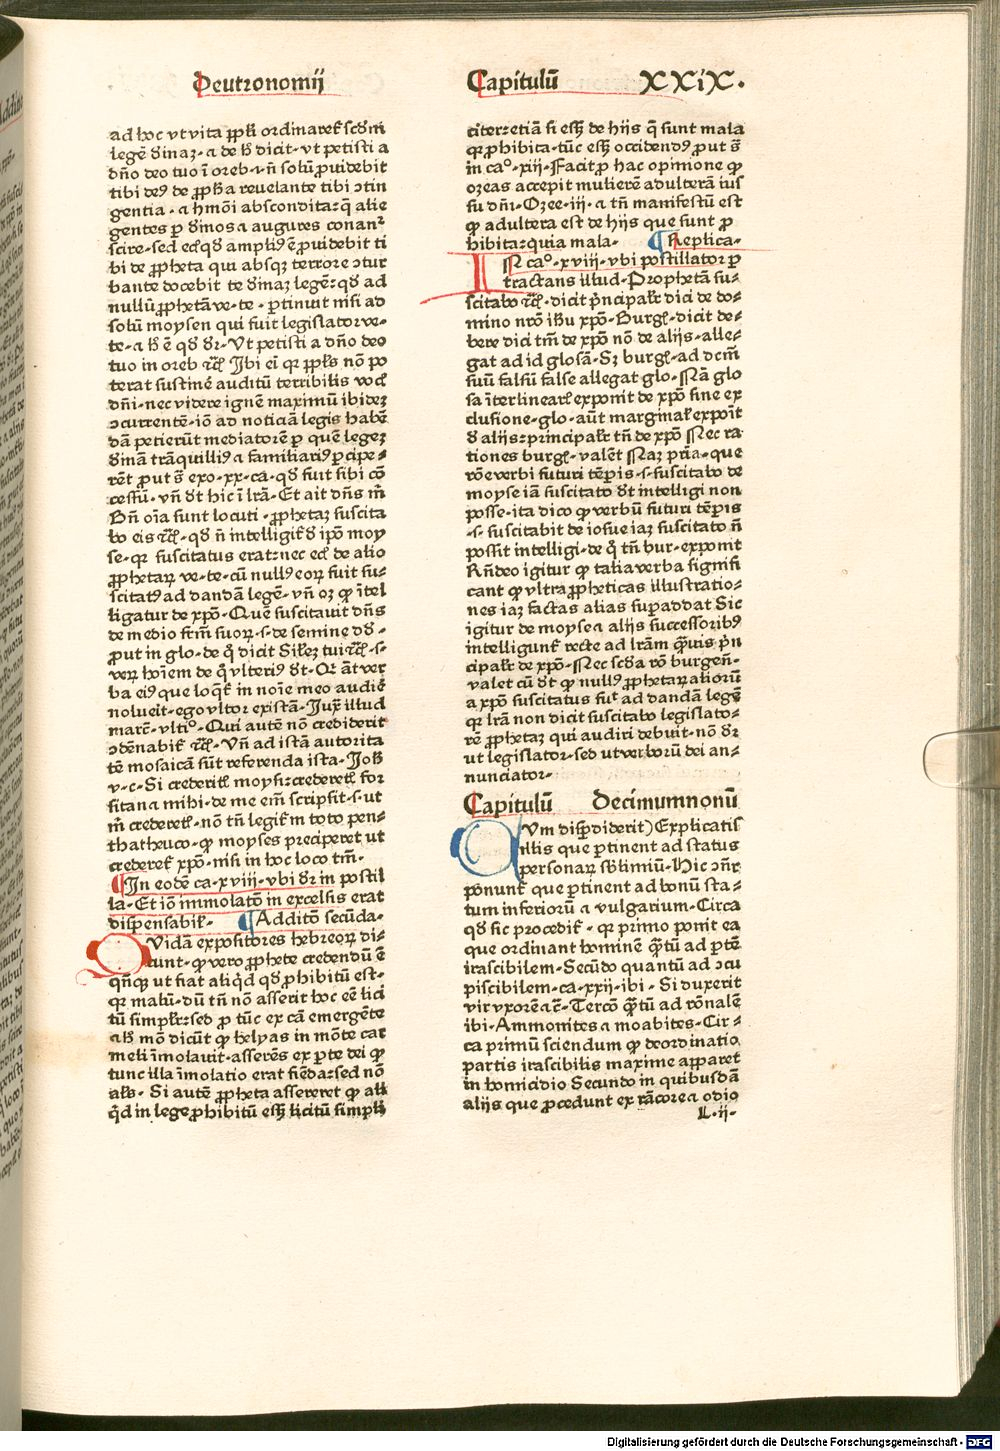 Deutronomij
Capitulū XXiX.
ad hoc vt vita ppli ordinaret scdm
legē dinaz. a de h dicit. vt petisti a
dño deo tuo ī oreb. ⁊ ñ solū puidebit
tibi deꝰ de ppha reuelante tibi ↄtin
gentia. a hmōi abscondita: q̄ alie
gentes p dinos a augures conanᵗ
scire. sed eciqd ampliꝰ ē puidebit ti
bi de ppheta qui absqz terrore ↄtur
bante docebit te dinaz legē: qd ad
nullū pphetā ve. te. ptinuit nisi ad
solū moysen qui fuit legislator ve.
te. a h ē qd dr. Vt petisti a dño deo
tuo in oreb ⁊c̄. Ibi eī qr ppls nō po
terat sustinē auditū terribilis vocꝭ
dñi. nec videre ignē maximū ibidez
ↄcurrentē. iō ad noticiā legis habē
dā petierūt mediatorē p quē legez
dinā trāquilliꝰ a familiariꝰ pcipe⸗
rēt put s̄ exo. xx. ca. qd fuit sibi cō
cessū. vñ dt hic ī lrā. Et ait dñs m̄
Bñ oīa sunt locuti. pphetaz suscita
bo eis ⁊c̄. qd ñ intelligit d ipō moy
se. qr suscitatus erat: nec ecī de alio
pphetaꝝ ve. te. cū nullꝰ eoꝝ fuit su⸗
scitatꝰ ad dandā legē. vñ oz qp ītel
ligatur de xpō. Quē suscitauit dñs
de medio frm̄ suoꝝ. s. de semine dd.
put in glo. de q̊ dicit Silez tui ⁊c̄. s.
veꝝ hoīem de q̊ vlteriꝰ dt. Qr āt ver
ba eiꝰ que loqt in noīe meo audiē
noluēit. ego vltor existā. Iux illud
marc̄. vltīo. Qui autē nō crediderit
ↄdēnabit ⁊c̄. Vñ ad istā autorita
tē mosaicā sūt referenda ista. Joh
v. c. Si crederitꝭ moysi: crederetꝭ for
sitan a mihi. de me em̄ scripsit. s. ut
m̄ crederetꝭ. nō tñ legit m toto pen⸗
thatheuco. qp moyses preciperet ut
crederet xpō. nisi in hoc loco tm̄.
¶In eodē ca. xviij. vbi dr in postil
la. Et iō immolatō in excelsis erat
dispensabil. ¶Additō secūda.
QVidā expositores hebreoꝝ di⸗
cunt. qp vero pphete credendū ē
qñqz ut fiat aliqd qd phibitū est.
qr malū. dū tñ nō asserit hoc eē lici
tū simplr: sed p tūc ex cā emergēte
a h mō dicūt qp helyas in mōte car
meli īmolauit. asserēs ex pte dei qp
tunc illa īmolatio erat fiēda: sed nō
als. Si autē ppheta assereret qp ali
qd in lege phibitū esz licitū simplr
citer: etiā si esz de hijs q̄ sunt mala
qr phibita. tūc esz occidendꝰ put s̄
in caº. xiij. Facit p hac opinione qp
ozeas accepit mulierē adulterā ius
su dñi. Ozee. iij. a tñ manifestū est
qp adultera est de hijs que sunt p
hibita: quia mala. ¶Replica.
IN caº. xviij. vbi postillator p
tractans illud. Prophetā su⸗
scitabo ⁊c̄. dicit p̄ncipalr dici de do⸗
mino nrō ihu xpō. Burḡ. dicit de⸗
bere dici tm̄ de xpō nō de alijs. alle⸗
gat ad id glosā. Sz burḡ. ad dcm̄
suū falsū false allegat glo. Nā glo
sa īterlinearl exponit de xpō sine ex
clusione. glo. aūt marginal expoīt
d alijs: principalr tñ de xpō Nec ra
tiones burḡ. valēt Naz pria. que
rōe verbi futuri tēpis. s. suscitabo de
moyse iā suscitato dt intelligi non
posse. ita dico qp verbū futuri tēpis
.s. suscitabit de iosue iaz suscitato ñ
possit intelligi. de q̊ tñ bur. exponit
Rñdeo igitur qp talia verba signifi
cant qp vltra ppheticas illustratio⸗
nes iaz factas alias supaddat Sic
igitur de moyse a alijs successoribꝰ
intelligunt recte ad lrām q̄uis p̄n
cipalr de xpō. Nec scda rō burgeñ.
valet cū dt qp nullꝰ pphetaꝝ alioꝝū
a xpō suscitatus fuit ad dandā legē
qr lrā non dicit suscitabo legislato⸗
rē pphetaz qui audiri debuit. nō dr
ut legislator. sed ut verborū dei an⸗
nunciator.
Capitulū Decimumnonū
QVm disp̄diderit) Explicatis
illis que ptinent ad status
personaꝝ sblimiū. Hic ↄñr
ponunt que ptinent ad bonū sta⸗
tum inferiorū a vulgarium. Circa
qd sic procedit. qr primo ponit ea
que ordinant hominē q̄tū ad ptē
irascibilem. Secūdo quantū ad ↄcu
piscibilem. ca. xxij. ibi. Si duxerit
vir vxorē a c̄. Tercō q̄tū ad rōnalē
ibi. Ammonites a moabites. Cir⸗
ca primū sciendum qp deordinatio
partis irascibilis maxime apparet
in homicidio Secundo in quibusdā
alijs que pcedunt ex rācore a odio
L. ij.
Digitalisierung gefördert durch die Deutsche Forschungsgemeinschaft - DFG